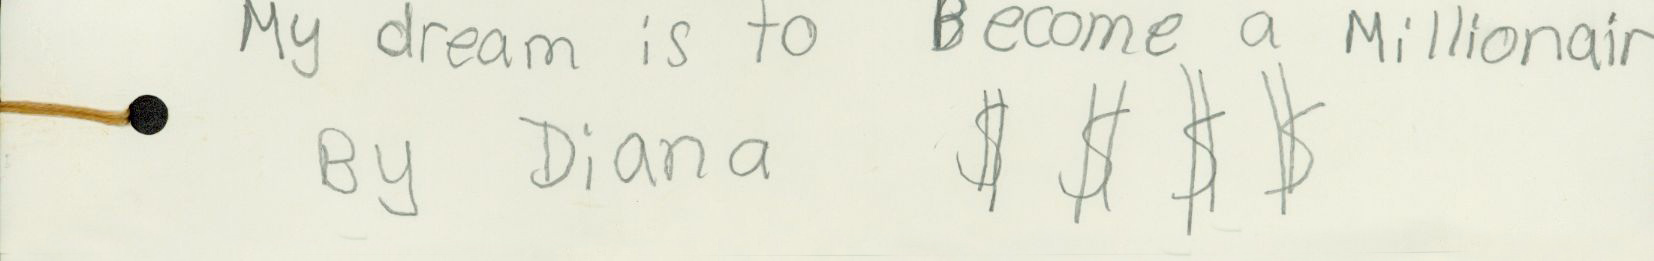 My dream is to Become a Millionair
By Diana $ $ $ $